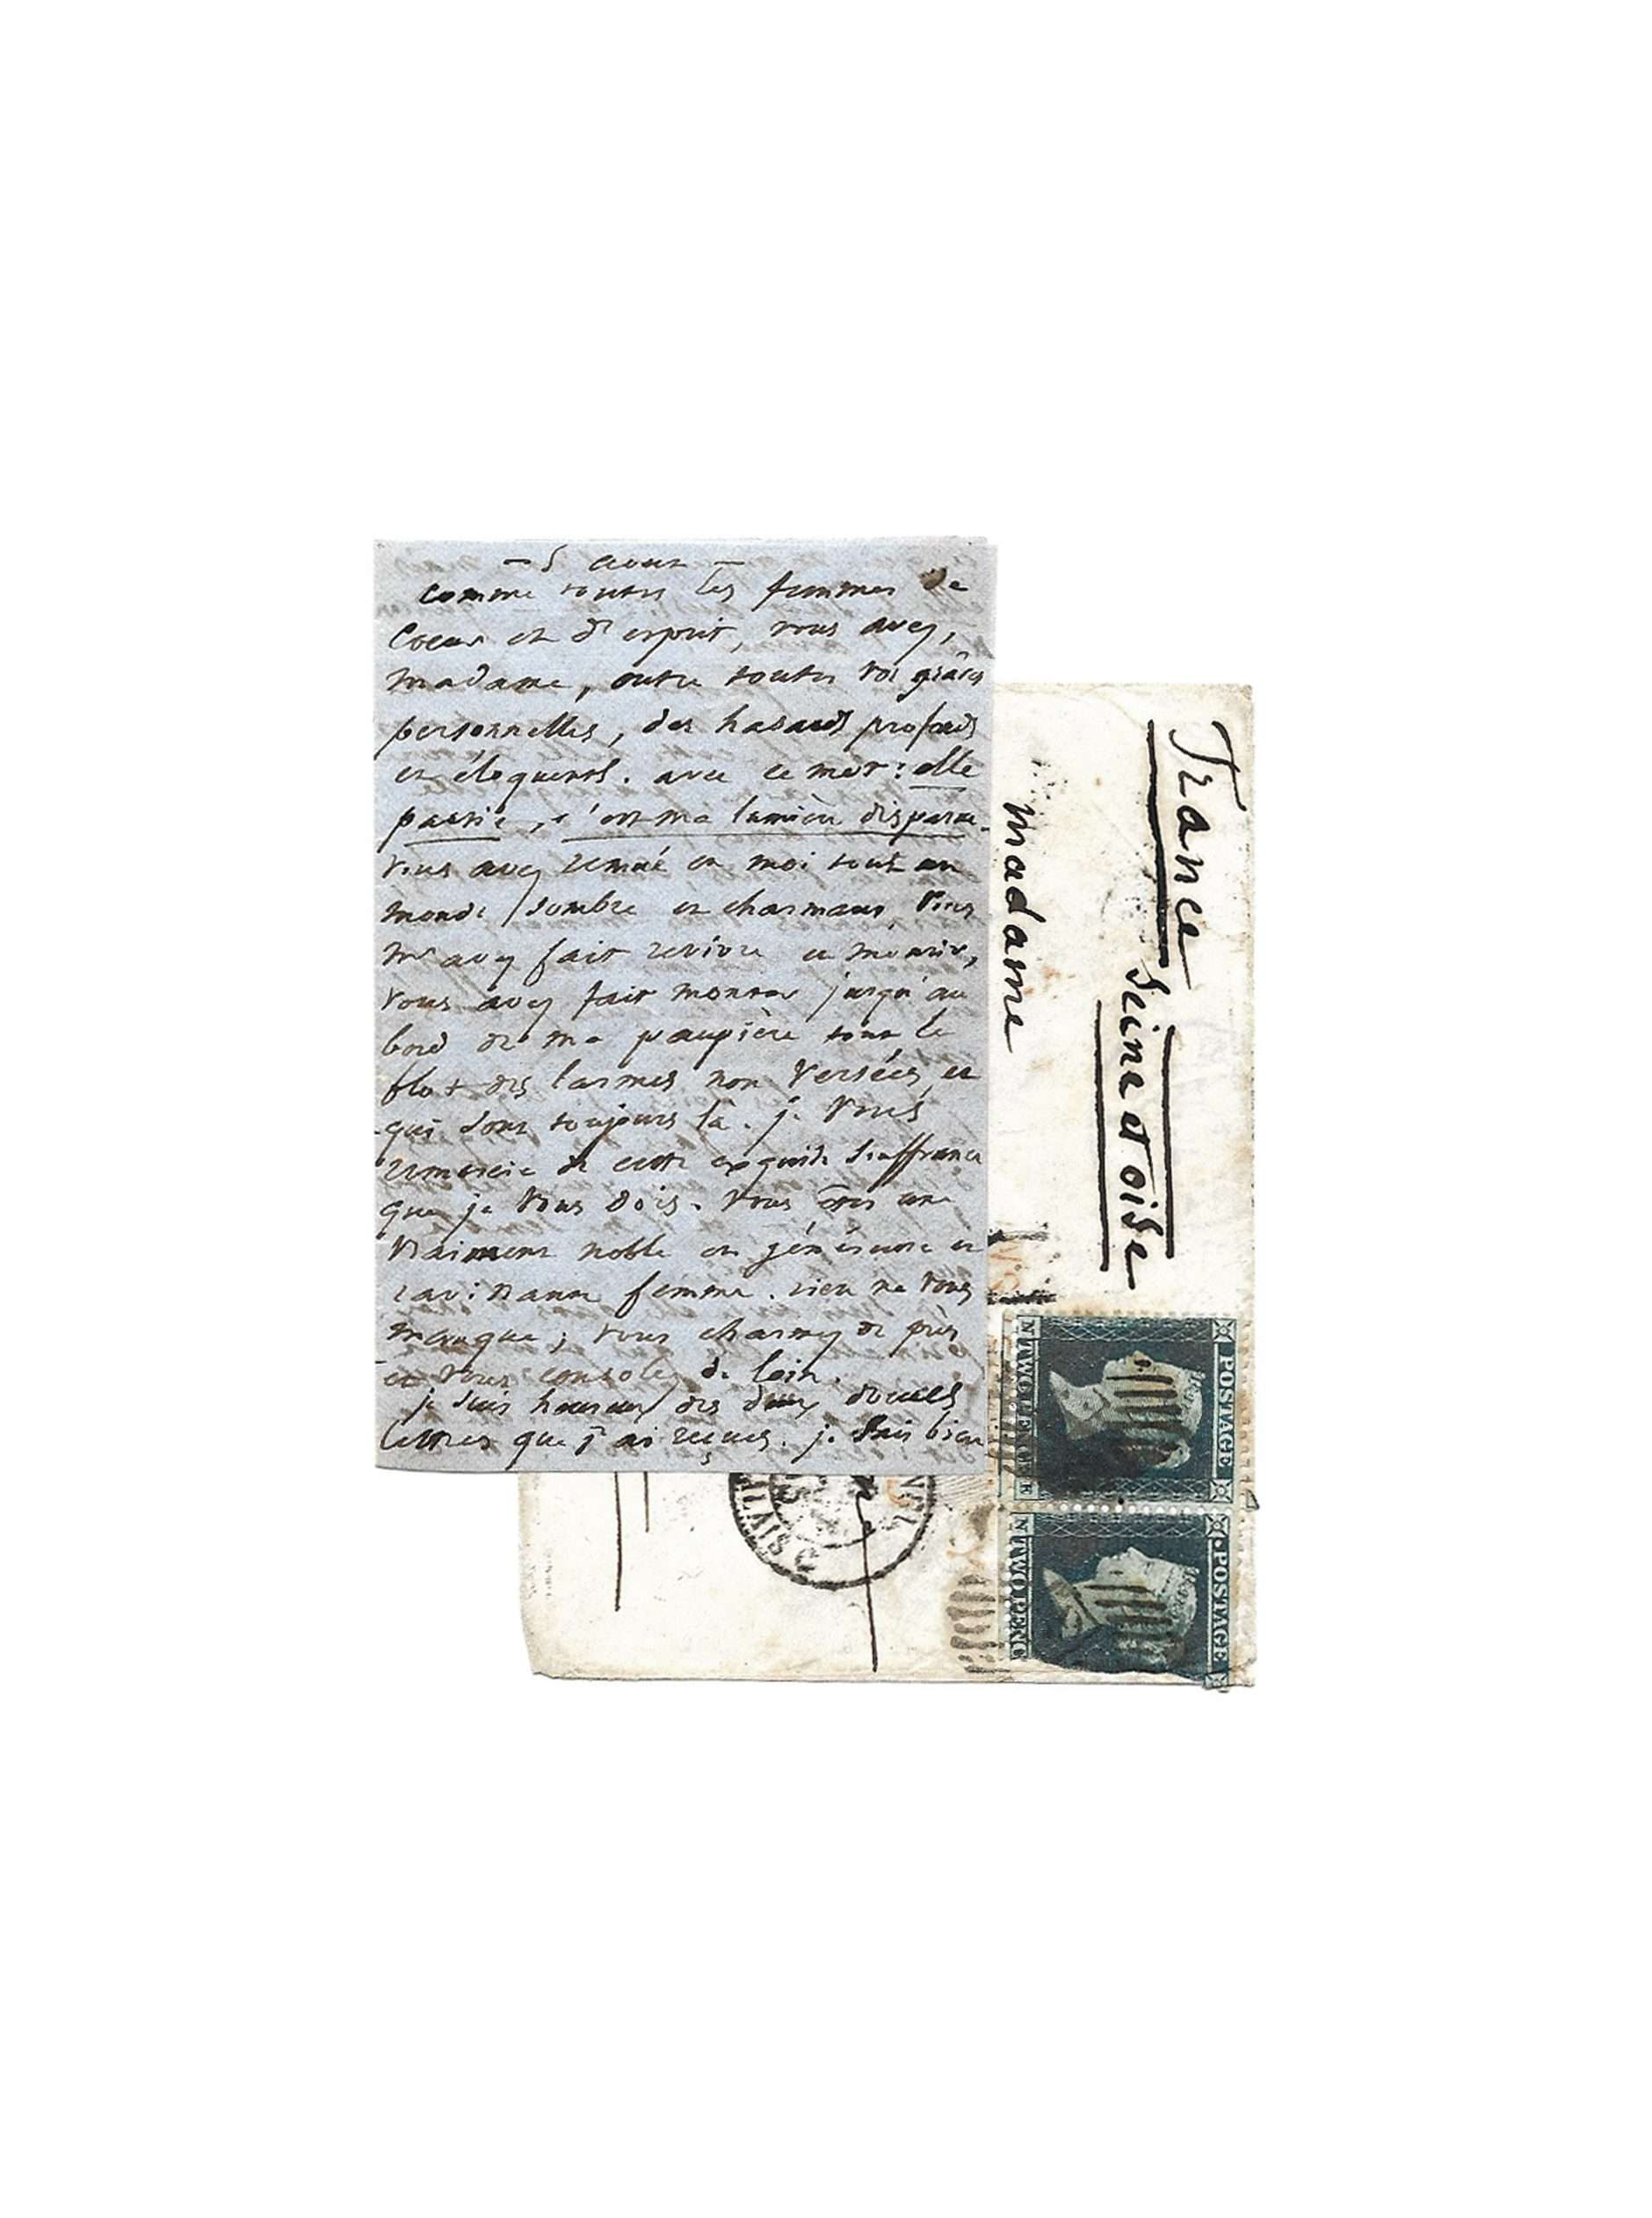 — 5 aout —
comme toutes les femmes de
coeur et d'esprit, vous avez,
madame, outre toutes vos grâces
personnelles, des hasards profonds
et éloquents. avec ce mot: elle
partie, c'est ma lumière disparue.
vous avez remué en moi tout un
monde sombre et charmant. Vous
m'avez fait revivre et mourir,
vous avez fait monter jusqu'au
bord de ma paupière tout le
flot des larmes non versées et
qui sont toujours là. je vous
remercie de cette exquise souffrance
que je vous dois. Vous êtes une
vraiment noble et généreuse et
ravissante femme. rien ne vous
manque; vous charmez de près
et vous consolez de loin.
je suis heureux des deux douces
lettres que j'ai reçues. je sais bien
France
Seine et oise
madame
POSTAGE
TWO PENCE
N
POSTAGE
TWO PENC
N